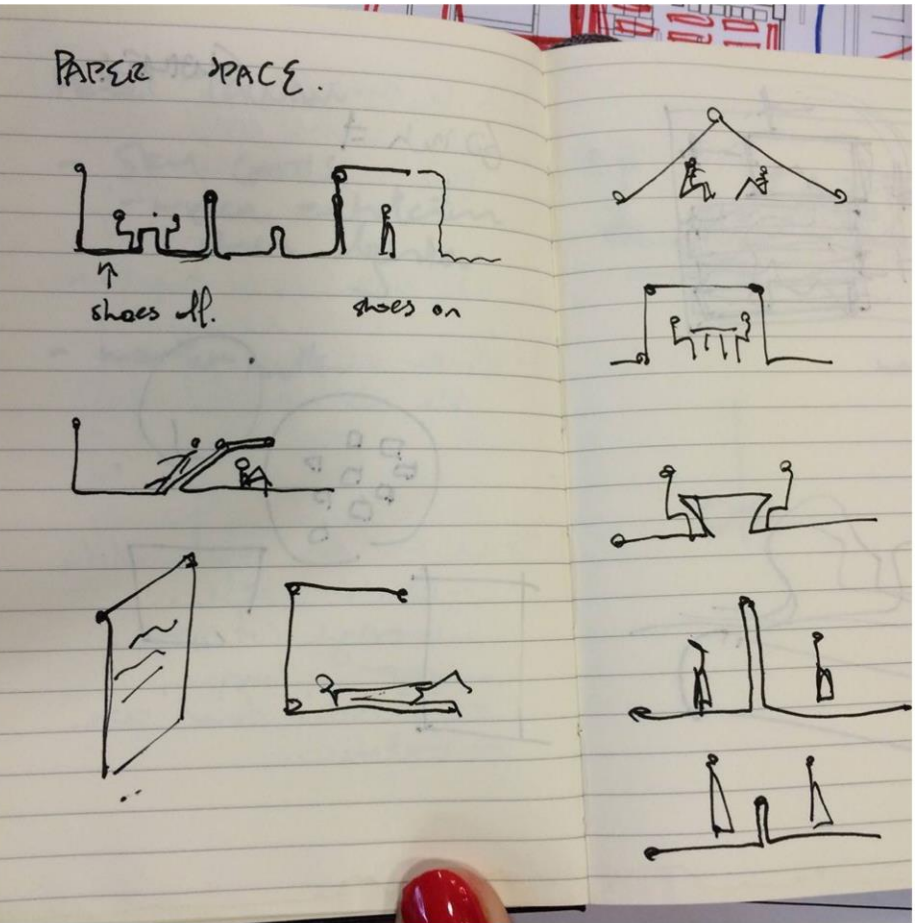 PAPER SPACE.
shoes off. shoes on